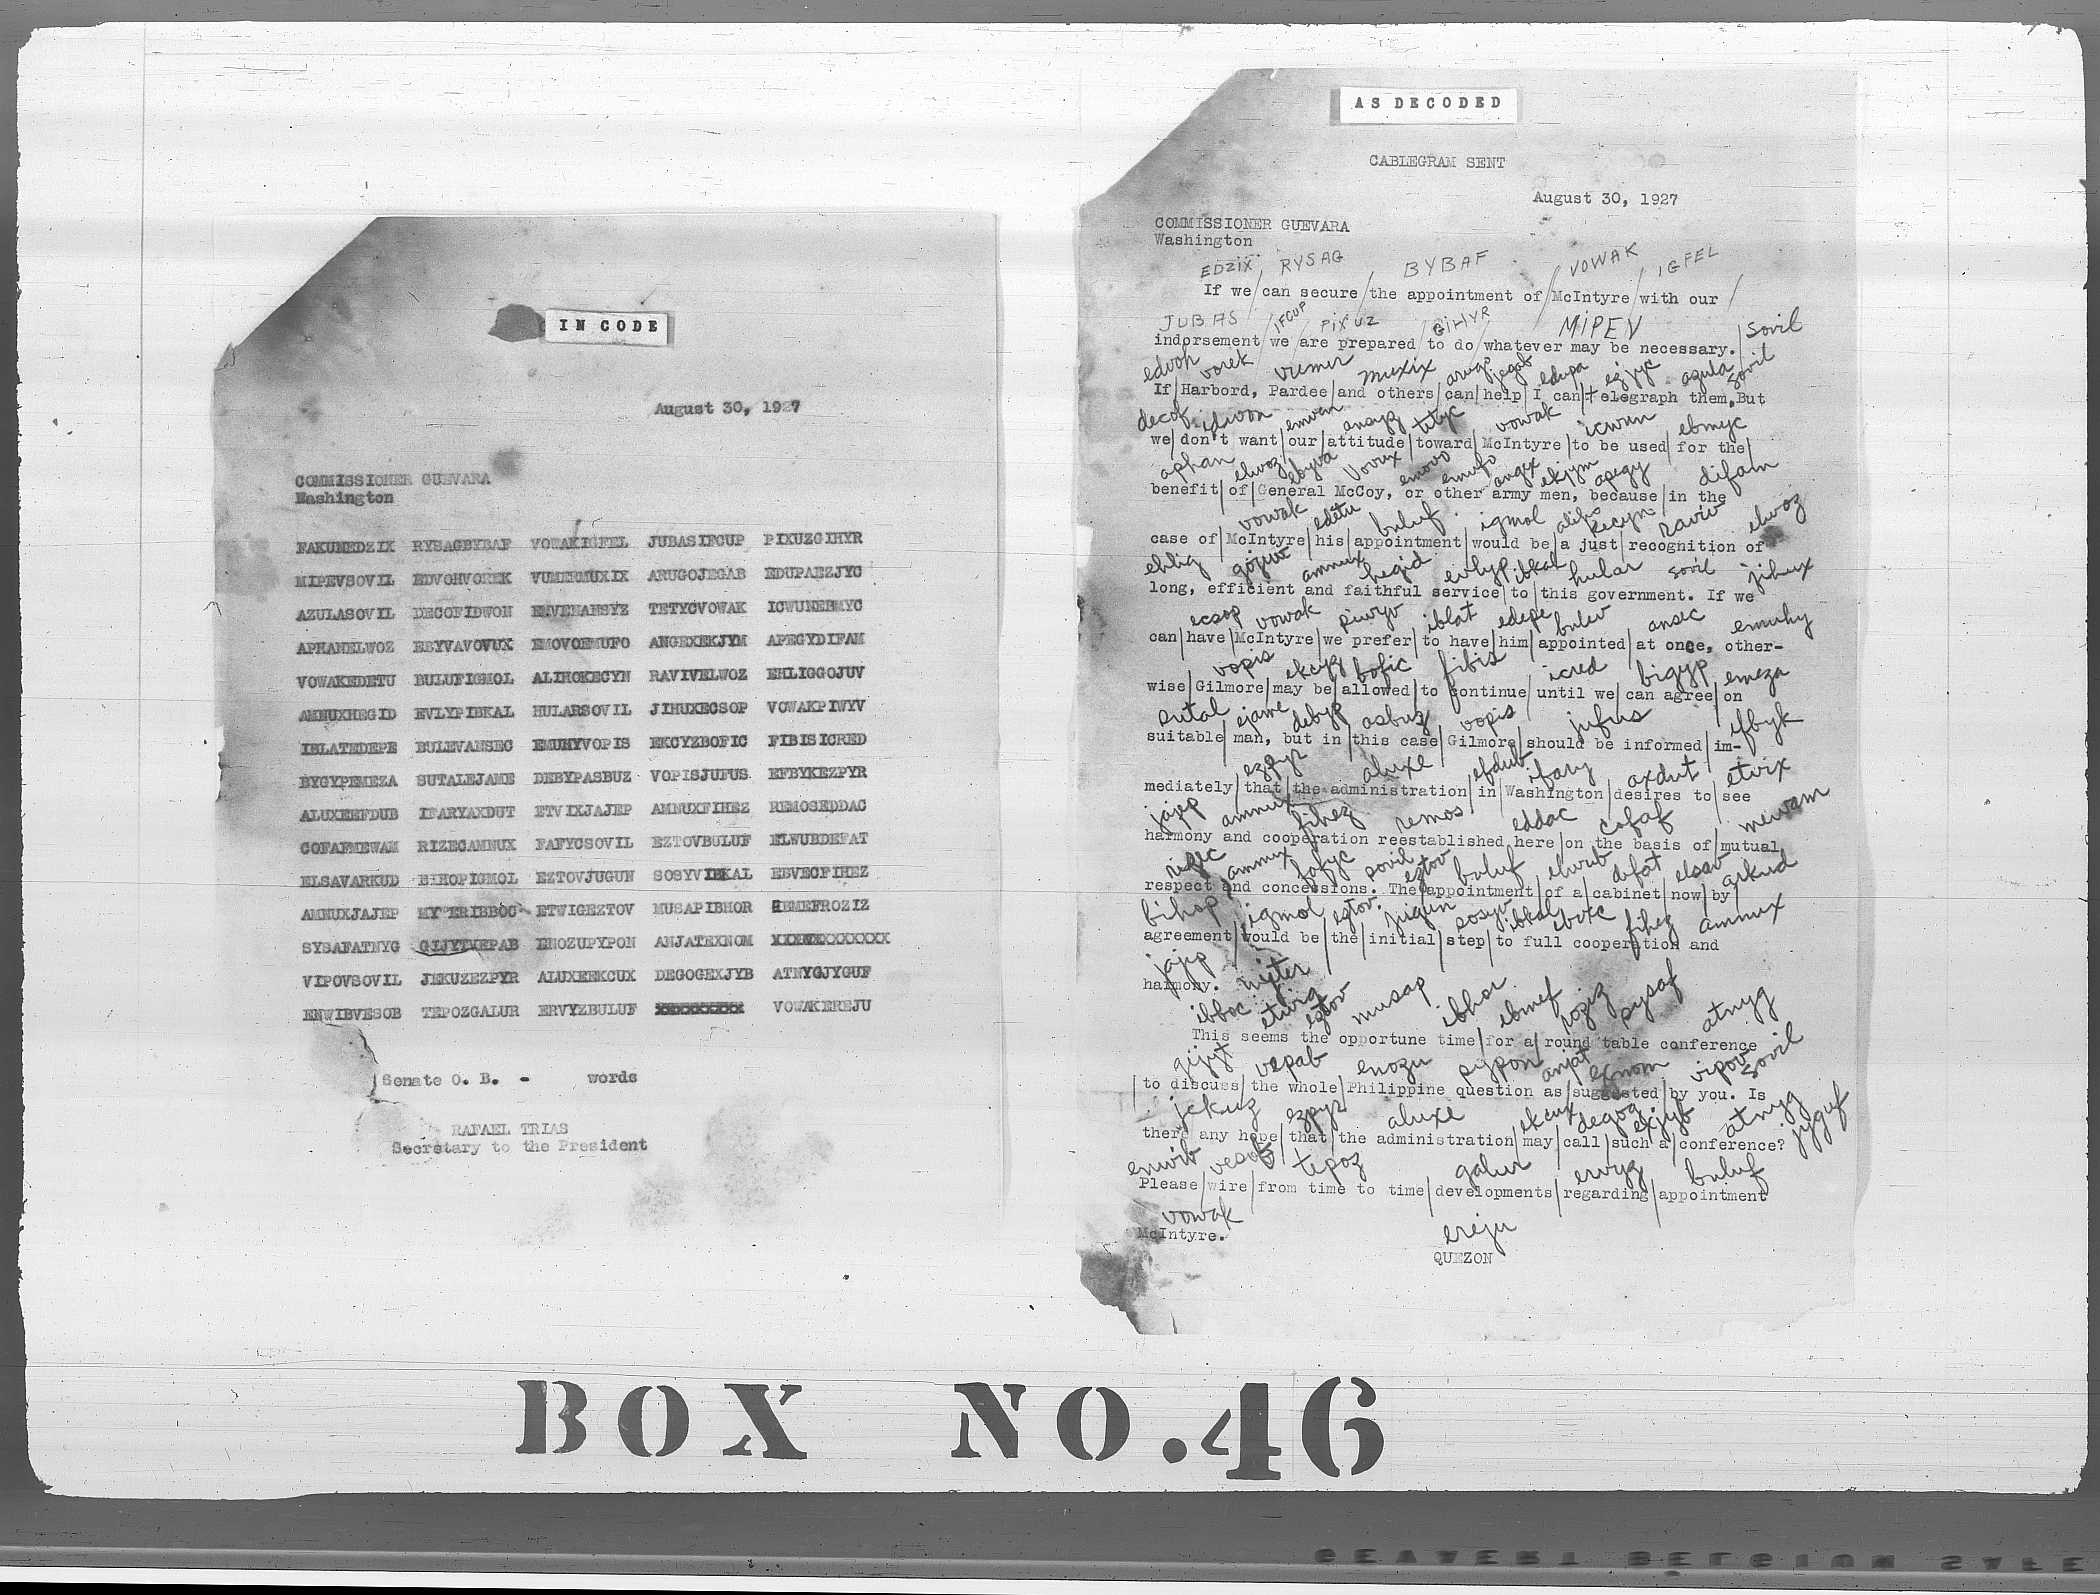 IN CODE
August 30, 1927
COMMISSIONER GUEVARA
Washington
FAKUNEDZIX RYSAGBYBAF VOWAKIGFEL JUBASIFCUP PIXUZGIHYR
MIPEVSOVIL EDVOHVOREK VUMERMUXIX ARUGOJEGAB EDUPAEZJYC
AZULASOVIL DECOFIDWON EMVENANSYZ TETYCVOWAK ICWUNEBMYC
APHANELWOZ EBYVAVOVUX EMOVOEMUFO ANGEXEKJYM APEGYDIFAM
VOWAKEDETU BULUFIGMOL ALIHOKECYN RAVIVELWOZ EHLIGGOJUV
AMNUXHEGID EVLYPIBKAL HULARSOVIL JIHUXECSOP VOWAKPIWYV
IBLATEDEPE BULEVANSEC EMUHYVOPIS EKCYZBOFIC FIBISICRED
BYGYPEMEZA SUTALEJAME DEBYPASBUZ VOPISJUFUS EFBYKEZPYR
ALUXEEFDUB IFARYAXDUT ETVIXJAJEP AMNUXFIHEZ REMOSEDDAC
COFAFMEWAM RIZECAMNUX FAFYCSOVIL EZTOVBULUF ELWUBDEFAT
ELSAVARKUD BIHOPIGMOL EZTOVJUGUN SOSYVIBKAL EBVECFIHEZ
AMNUXJAJEP ETWIGEZTOV MUSAPIBHOR EBMEFROZIZ
SYSAFATNYG GIJYTVEPAB ENOZUPYPON ANJATEXNOM
VIPOVSOVIL JEKUZEZPYR ALUXEEKCUX DEGOGEXJYB ATNYGJYGUF
ENWIBVESOB TEPOZGALUR ERVYZBULUF VOWAKEREJU
Senate O. B. - words
RAFAEL TRIAS
Secretary to the President
AS DECODED
CABLEGRAM SENT
August 30, 1927
COMMISSIONER GUEVARA
Washington
EDZIX RYSAG BYBAF VOWAK IGFEL
If we/can secure/the appointment of/McIntyre/with our/
JUBAS IFCUP PIXUZ GIHYR MIPEV sovil
indorsement/we/are prepared/to do/whatever may be necessary./
edvoh vorek vumer muxix arugo jegab edupa ezjyc azula sovil
If/Harbord, Pardee/and others/can/help/I can/telegraph them. But
decof idwon emven ansyz tetyc vowak icwun ebmyc
we/don't want/our/attitude/toward/McIntyre/to be used/for the/
aphan elwoz ebyva vovux emovo emufo angex ekjym apegy difam
benefit/of/General McCoy, or other army men, because/in the
vowak edetu buluf igmol aliho kecyn raviv elwoz
case of/McIntyre/his/appointment/would be/a just/recognition of
ehlig gojuv amnux hegid evlyp ibkal hular sovil jihux
long, efficient and faithful service/to/this government. If we
ecsop vowak piwyv iblat edepe bulev ansec emuhy
can/have/McIntyre/we prefer/to have/him/appointed/at once, other-
vopis ekcyz bofic fibis icred bigyp emeza
wise/Gilmore/may be/allowed/to continue/until we/can agree/on
sutal ejame debyp asbuz vopis jufus efbyk
suitable/man, but in/this case/Gilmore/should be informed/im-
ezpyr aluxe efdub ifary axdut etvix
mediately/that/the administration/in/Washington/desires to/see
jajep amnux fihez remos eddac cofaf mewam
harmony and cooperation reestablished/here/on the basis of/mutual
rizec amnux fafyc sovil eztov buluf elwub defat elsav arkud
respect and concessions. The/appointment/of a/cabinet/now/by/
bihop igmol eztov jugun sosyv ibkal ebvec fihez amnux
agreement/would be/the/initial/step/to full cooperation and
jajep
harmony.
ibboc etwig eztov musap ibhor ebmef roziz sysaf
This seems the opportune time/for a/round table conference
atnyg
gijyt vepab enozu pypon anjat exnom vipov sovil
to discuss/the whole/Philippine question as/suggested/by you. Is
jekuz ezpyr aluxe ekcux degog exjyb atnyg jyguf
there any hope/that/the administration/may/call/such a/conference?
enwib vesob tepoz galur ervyz buluf
Please/wire/from time to time/developments/regarding/appointment
vowak
McIntyre.
ereju
QUEZON
BOX NO. 46